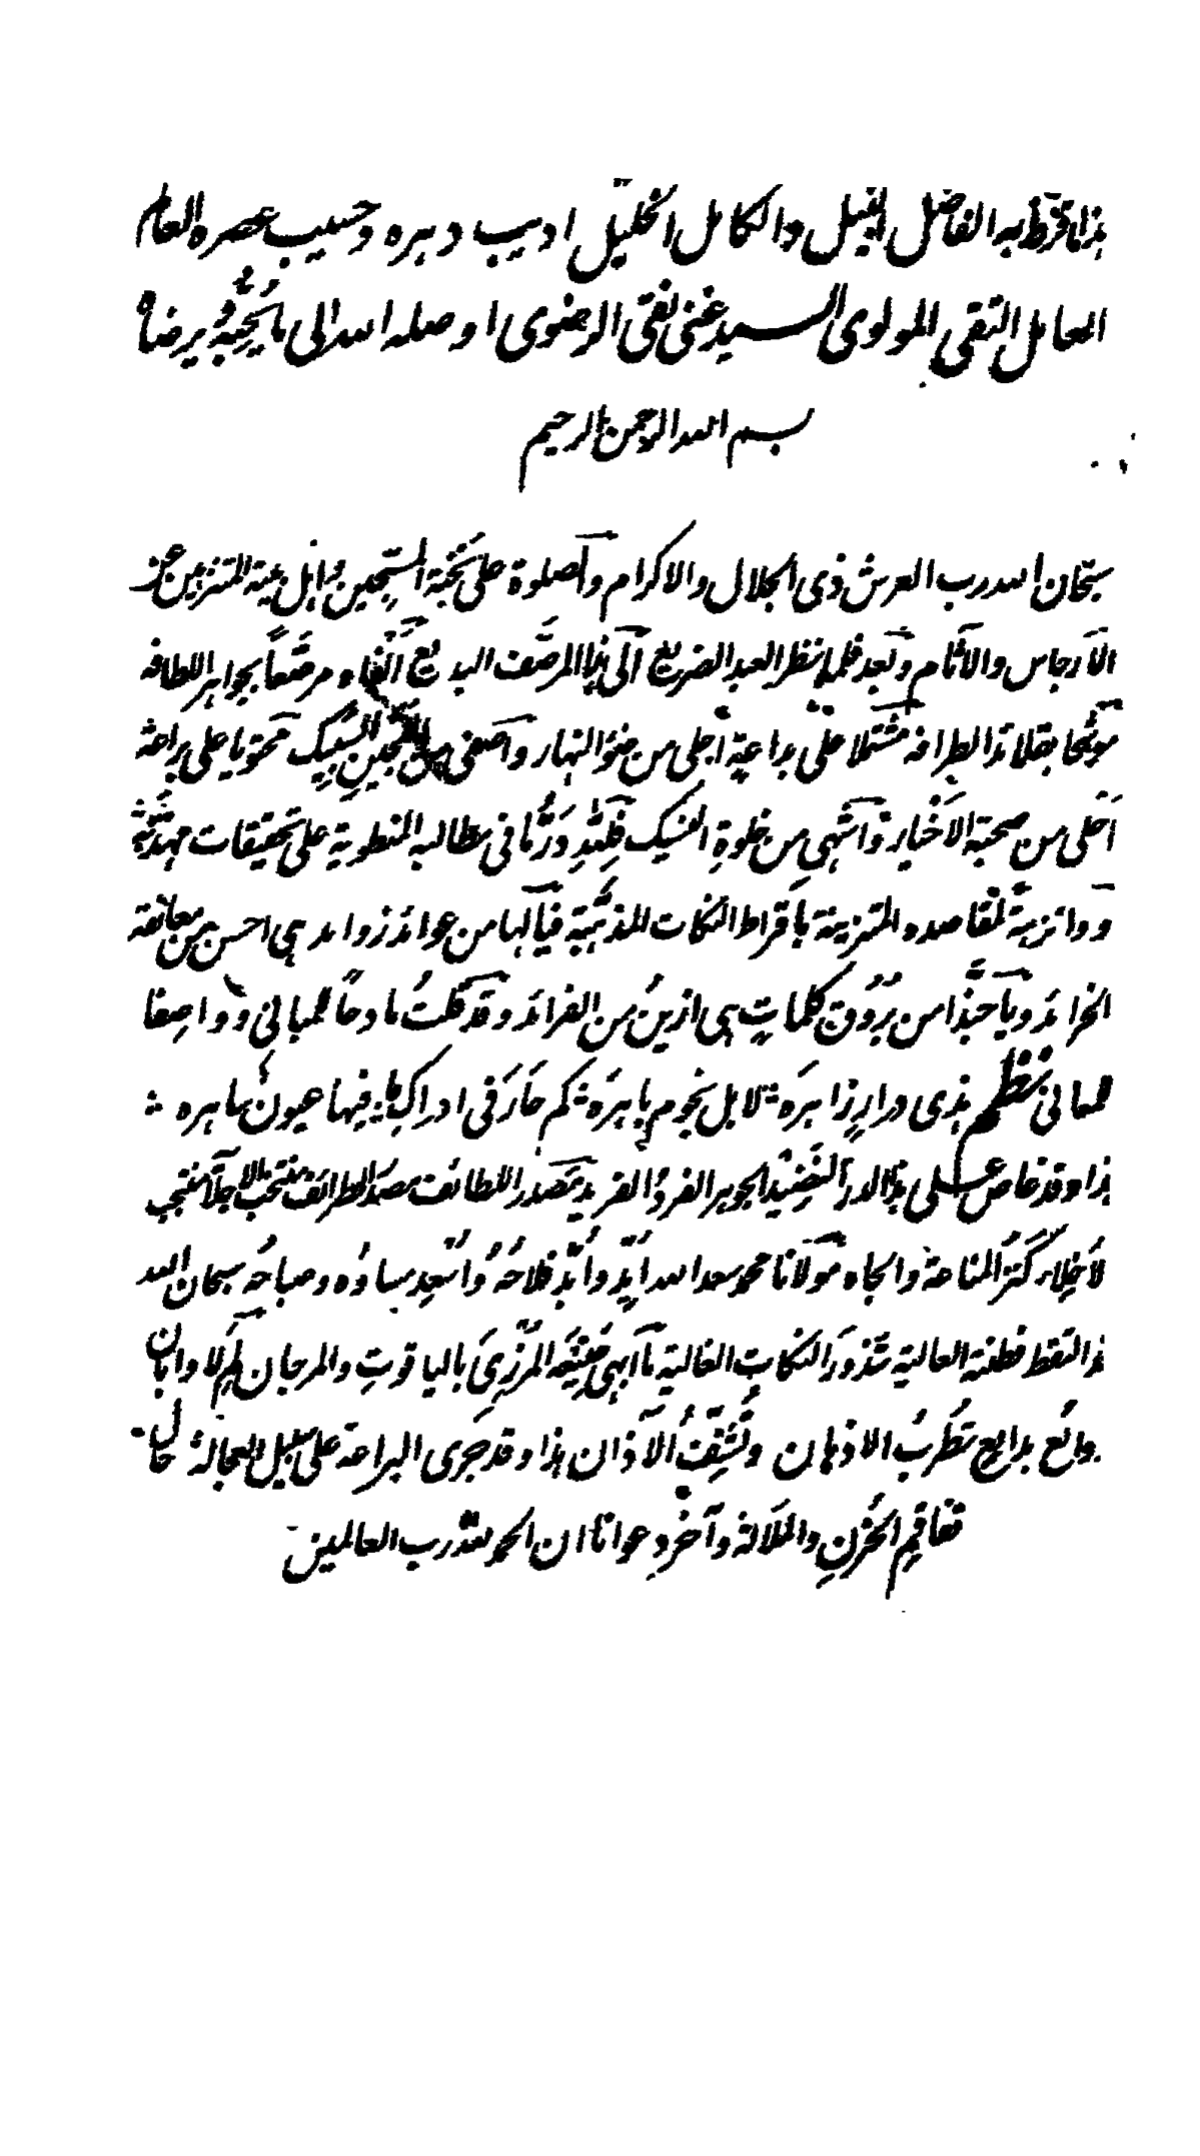 هذا ما قرظ به الفاضل النبيل والكامل الخليل اديب دهره وحسيب عصره العالم
العامل التقى المولوى السيد غنى نقى الرضوى اوصله الله الى ما يُحِبُّهُ ويرضاه
بسم الله الرحمن الرحيم
سبحان الله رب العرش ذى الجلال والاكرام والصلوة على نخبة المستجبين واهل بيته المتنزهين عن
الارجاس والاثام وبعد فلما نظر العبد الضريع الى هذا المرصَّف البديع مرصَّعاً بجواهر اللطافه
موشحا بقلائد الطرافه مشتملا على بداعةٍ اجلى من ضوء النهار واصفى من اللجين السبيك محتويا على براعة
اَحلى من صحبة الاَخيار واشهى من خلوةِ فلِلّٰهِ دَرُّما فى مطالبه المنطوية على تحقيقات مهذَّبة
و مقاصده المتزينة باَقراط النكات المذهَّبة فيا لها من عوائد زوائد هى احسن من معانقة
الخرائد ويا حبَّذا من بُرُوق كلماتٍ هى ازينُ من الفرائد وقد قلتُ مادحاً للمبانى وواصِفا
للمعانى نظم هذى درارٍ زاهرَه ؛ لا بل نجوم باهرَه ؛ كم حَارَ فى ادراكِها ؛ فيها عيون ساهره ؛
هذا وقد غاص على هذا الدر النضيد الجوهر الفرد الفريد مصدر اللطائف مصدر الطرائف منتخب الاجلَّاء منتجب
الاَخِلاء كنز المناعة والجاه مولانا محمد سعد الله اَيَّد واَبَّد فلاحَهُ واَسْعَدَ مساؤه وصباحَه سبحان الله
قد التقط فطنته العالية شذورَ النكاتِ الغالية ما ابهى المُزْرِىَ بالياقوتِ والمرجان لِمَ لا وابان
روائع بدايع تُطرِبُ الاذهان وتُشَنِّفُ الاٰذان هذا وقد جَرى اليراعة على سبيل العجالة حال
تفاقمِ الحُزنِ والملالة واٰخر دعوانا ان الحمد لله رب العالمين